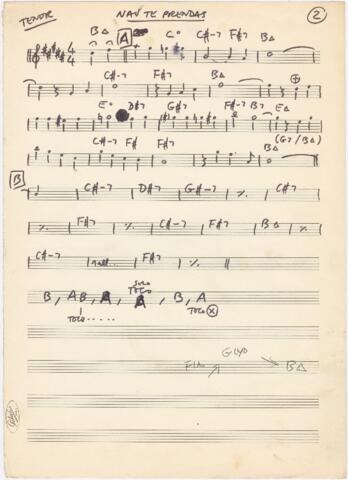 TENOR NAÕ TE PRENDAS 2
B△ A C° C#-7 F#7 B△
4 4
C#-7 F#7 B△
E° D#7 G#7 F#-7 B7 E△
C#-7 F# F#7 B△ (G7/B△)
B C#-7 D#7 G#-7 ٪ C#7
٪ F#7 ٪ C#-7 F#7 B△ ٪
C#-7 F#7 ٪
B, AB, A, A, B, A
SOLO
TOCO
TOCO..... TOCO
GLYD
B△